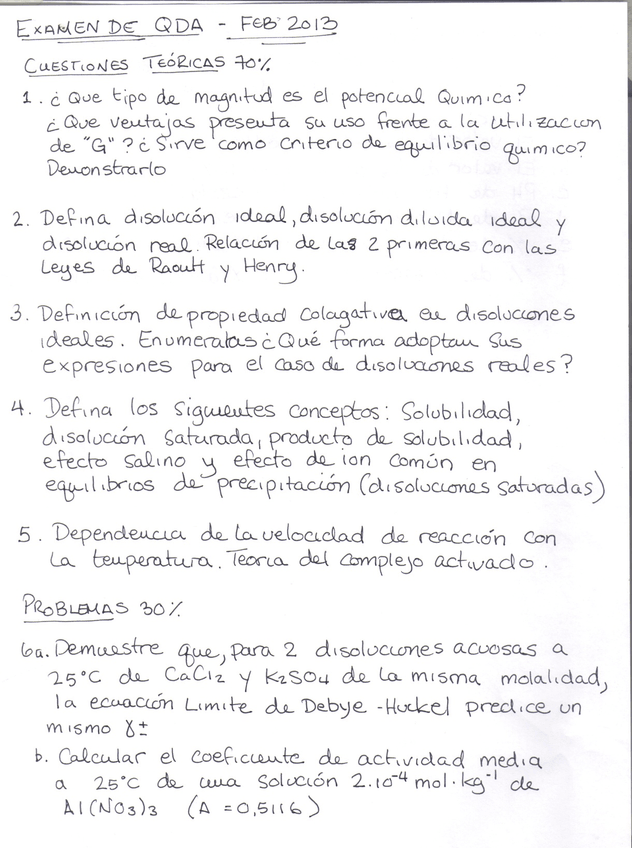 EXAMEN DE QDA - FEB 2013
CUESTIONES TEÓRICAS 70%
1. ¿Que tipo de magnitud es el potencial Quimico?
¿Que ventajas presenta su uso frente a la utilización
de "G"? ¿Sirve como criterio de equilibrio quimico?
Demonstrarlo
2. Defina disolución ideal, disolución diluida ideal y
disolución real. Relación de las 2 primeras con las
Leyes de Raoult y Henry.
3. Definición de propiedad colagativa en disoluciones
ideales. Enumeralas ¿Qué forma adoptan sus
expresiones para el caso de disoluciones reales?
4. Defina los siguientes conceptos: Solubilidad,
disolución saturada, producto de solubilidad,
efecto salino y efecto de ion común en
equilibrios de precipitación (disoluciones saturadas)
5. Dependencia de la velocidad de reacción con
la temperatura. Teoria del complejo activado.
PROBLEMAS 30%
6a. Demuestre que, para 2 disoluciones acuosas a
25°C de CaCl2 y K2SO4 de la misma molalidad,
la ecuación Limite de Debye-Huckel predice un
mismo γ±
b. Calcular el coeficiente de actividad media
a 25°C de una solución 2.10⁻⁴ mol.kg⁻¹ de
Al(NO3)3 (A = 0,5116)